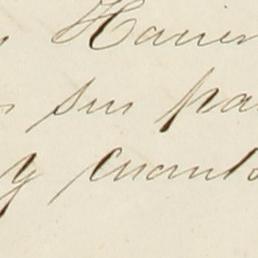 Havien
sus pa
y cuando